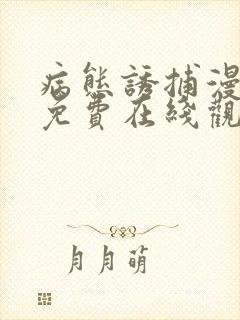 病態誘捕漫
免費在綫觀
月月萌